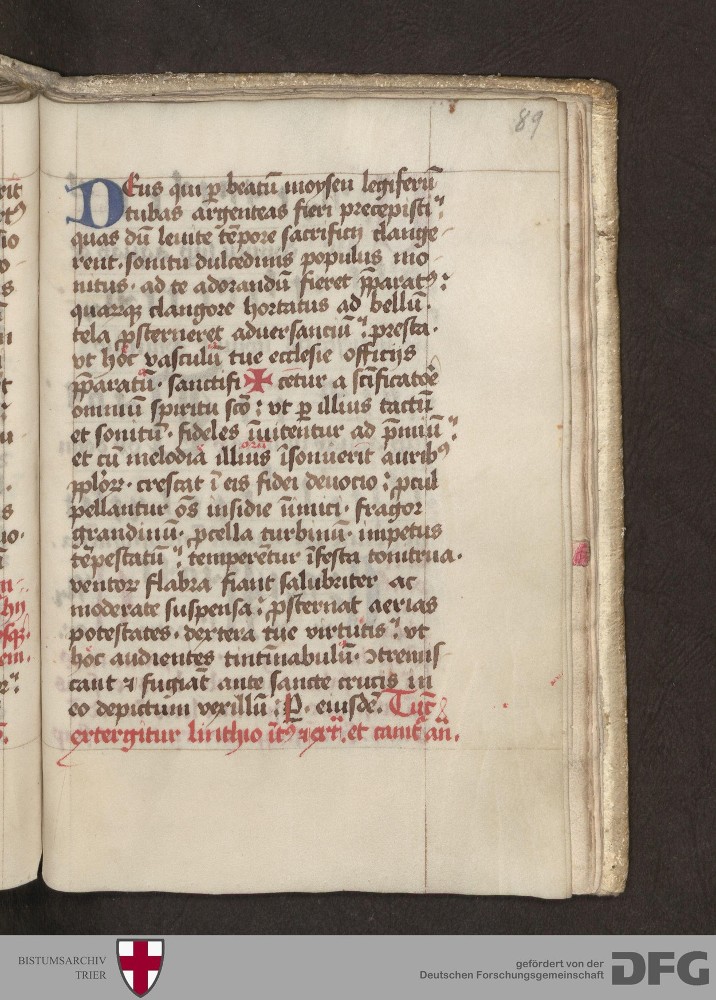 89
DEus qui p beatū moysen legiferū
tubas argenteas fieri precepisti
quas dū leuite tēpore sacrificij clange
rent · sonitu dulcedinis populus mo
nitus · ad te adorandū fieret p̄paratꝰ :
quarūqꝫ clangore hortatus ad bellū ·
tela ꝓsterneret aduersanciū : presta ·
vt hoc vasculū tue ecclesie officijs
p̄paratū · sanctifi ✠ cetur a sc̄ificatoē
omniū spiritu sc̄o : vt p illius tactū
et sonitū · fideles īuitentur ad p̄miū :
et cū melodia illius īsonuerit auribꝰ
pplorꝝ · crescat ī eis fidei deuocio : ꝓcul
pellantur oēs insidie inimici · fragor
grandinū · ꝓcella turbinū · impetus
tēpestatū : temperētur īfesta tonitrua ·
ventorꝝ flabra fiant salubriter ac
moderate suspensa : ꝓsternat aerias
potestates · dextera tue virtutis : vt
hoc audientes tintīnabulū · ꝯtremis
cant ⁊ fugiāt ante sancte crucis in
eo depictum vexillū : P̱ · eiusdē · Tūc
extergitur linthio ītꝰ ⁊ ext̄ · et cant̄ añ ·
BISTUMSARCHIV
TRIER
gefördert von der
Deutschen Forschungsgemeinschaft
DFG